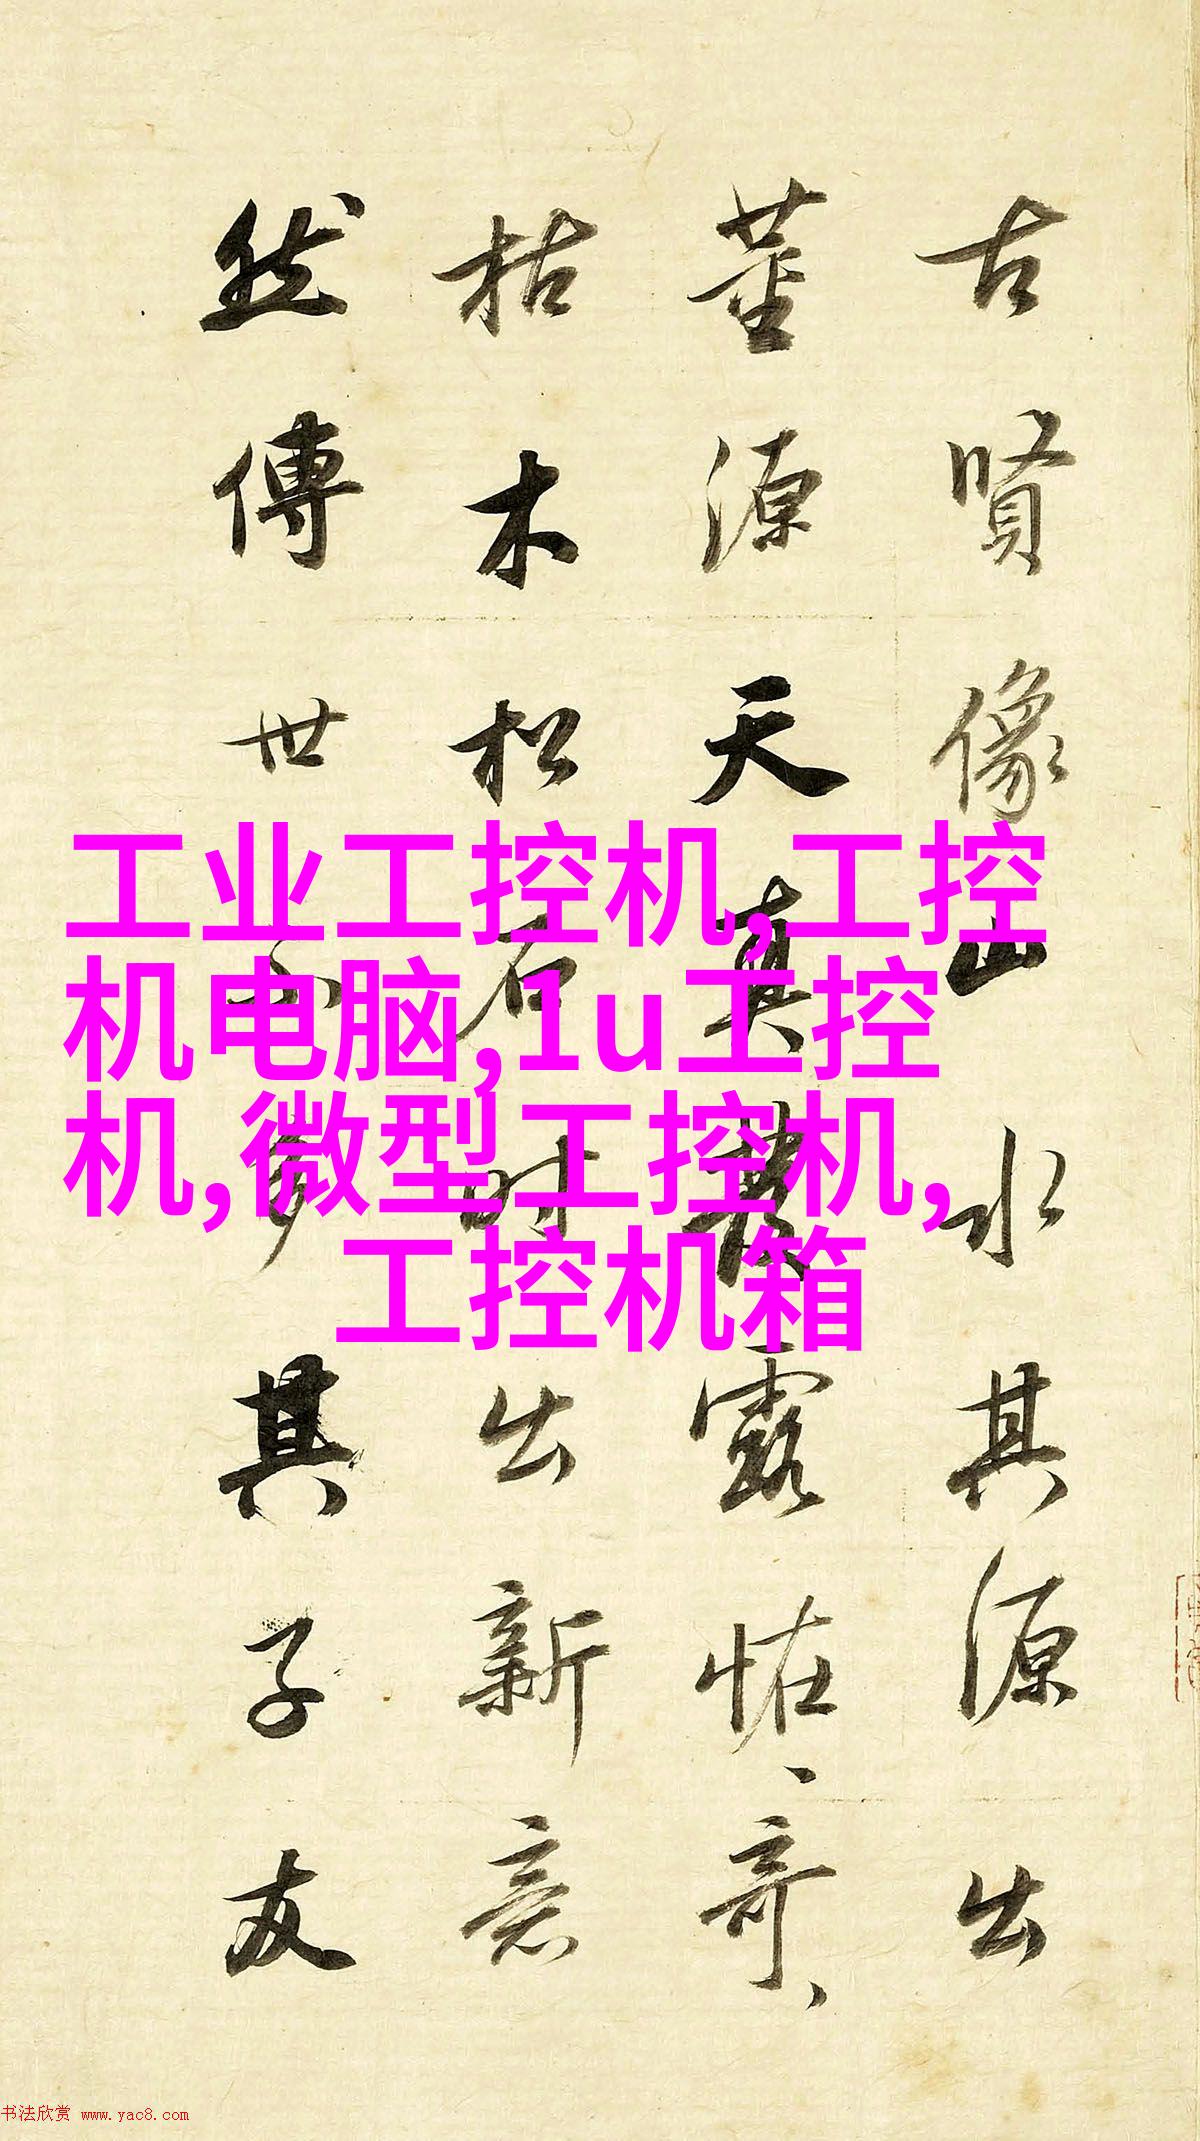 古賢像山水其源出
董源天真露恠、奇、
枯木松石時出新意
然傳世不多其子友
工业工控机,工控
机电脑,1u工控
机,微型工控机,
工控机箱
书法欣赏 www.yac8.com